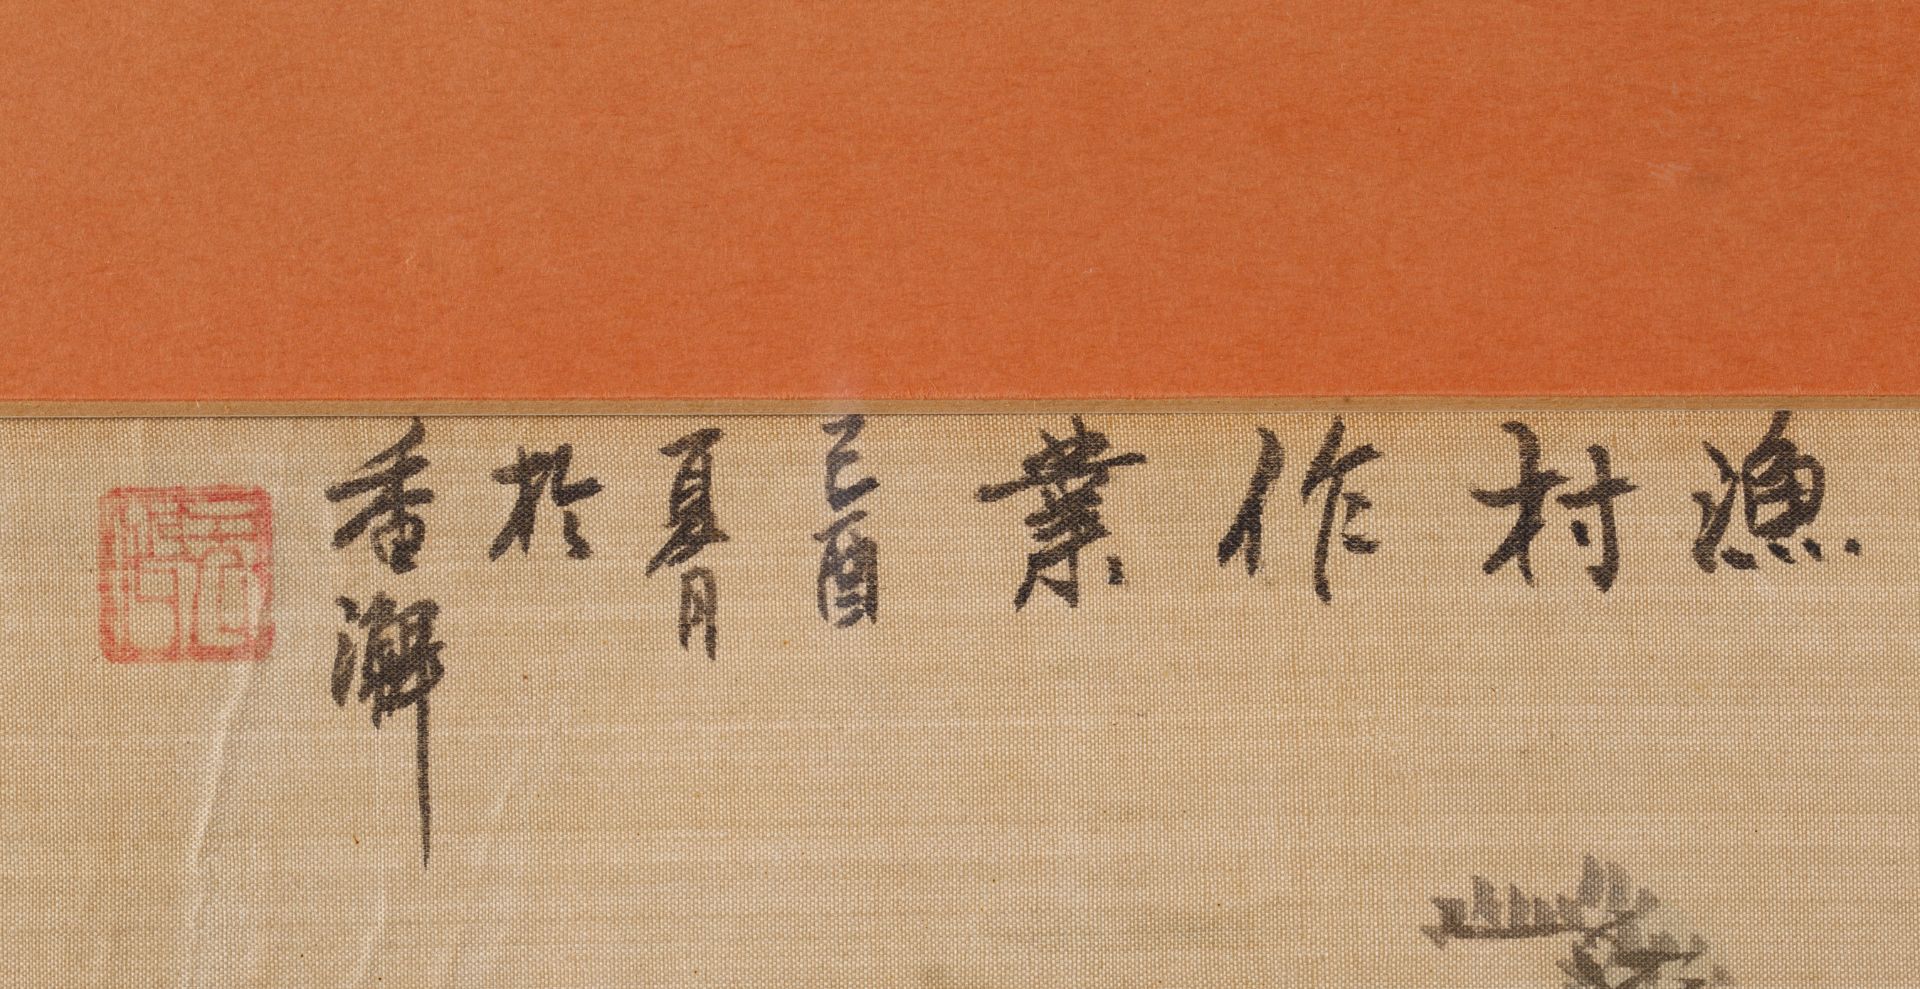 漁村作業
己酉
夏月
於
香澥